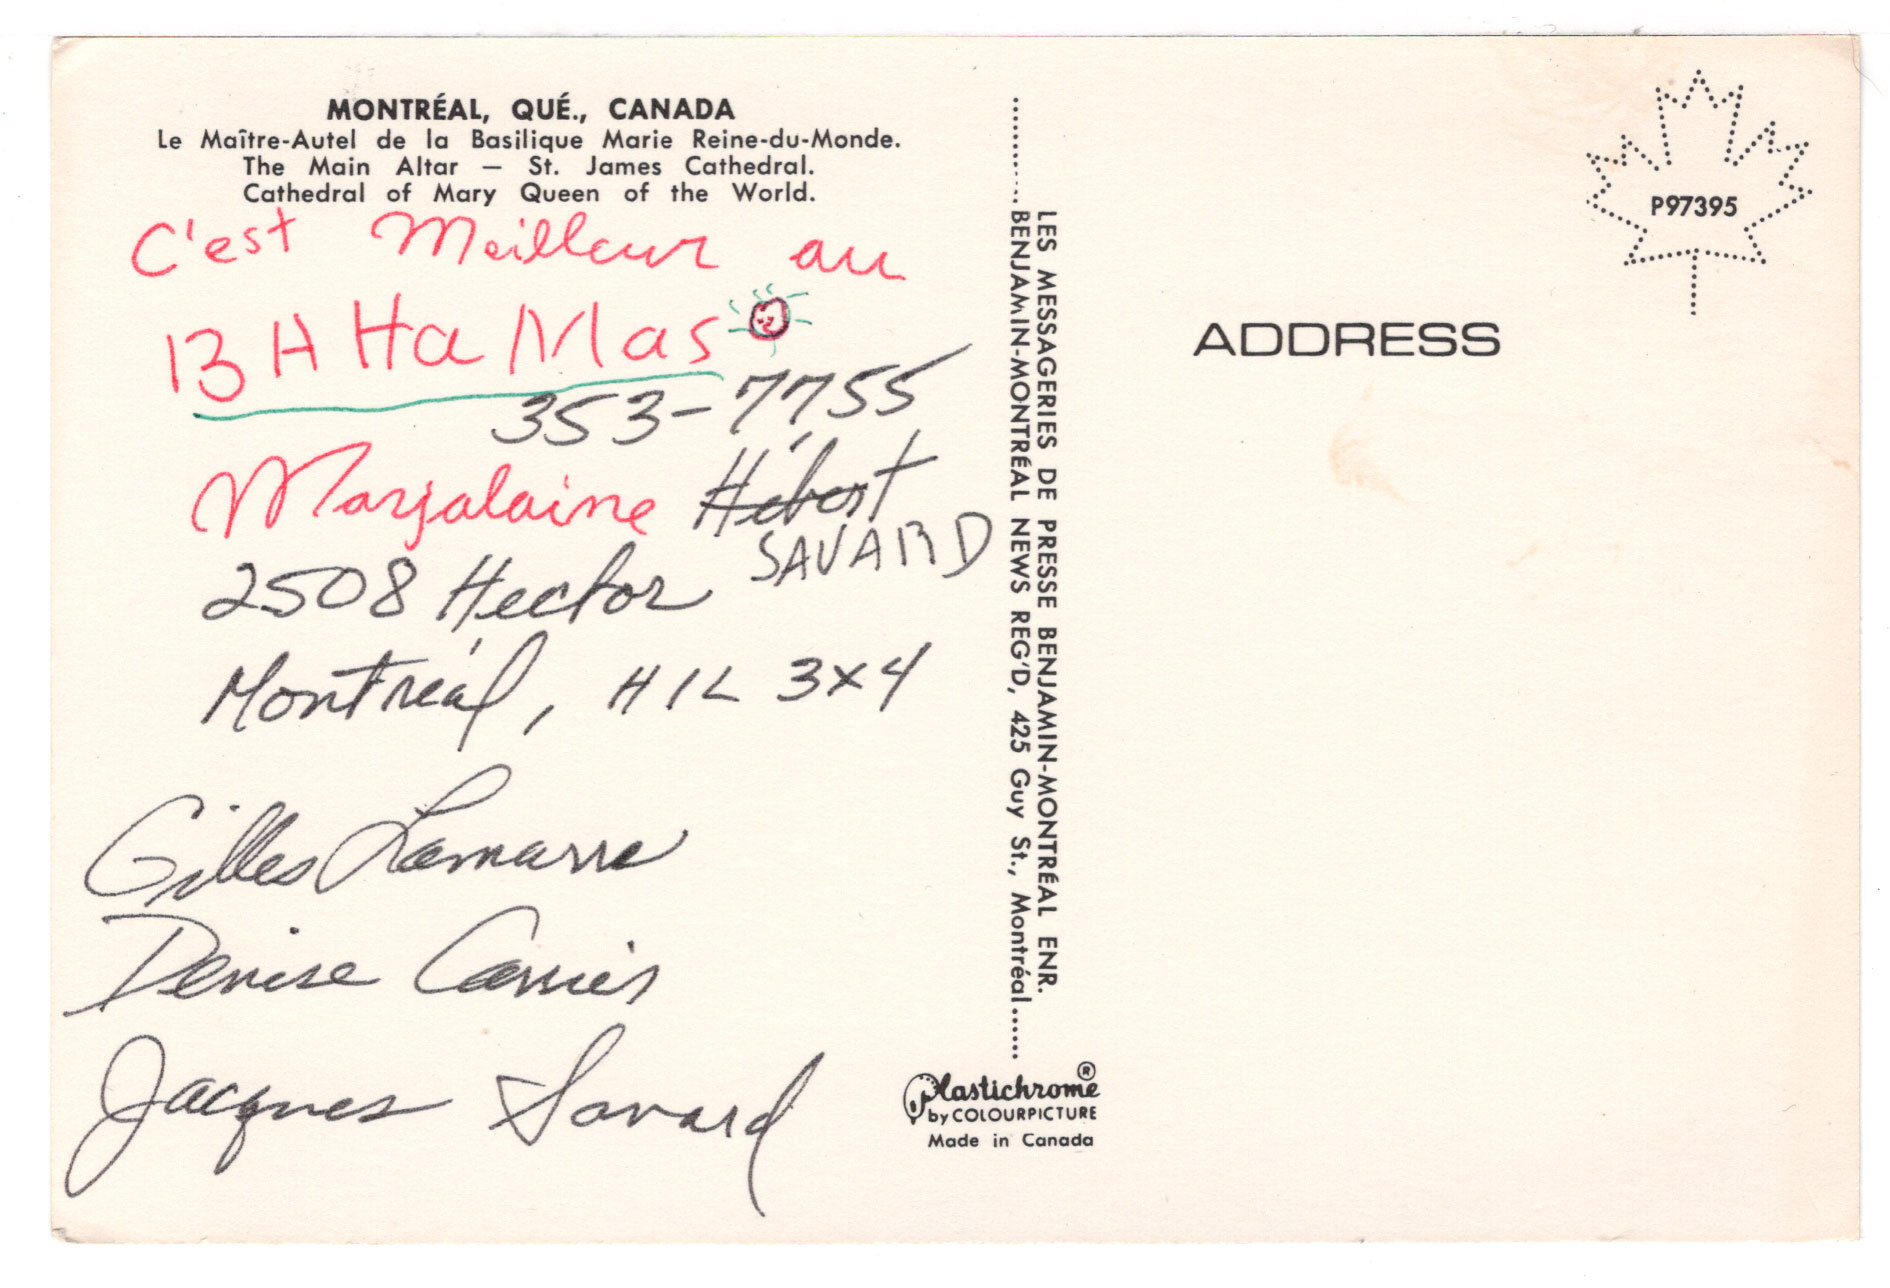 MONTRÉAL, QUÉ., CANADA
Le Maître-Autel de la Basilique Marie Reine-du-Monde.
The Main Altar — St. James Cathedral.
Cathedral of Mary Queen of the World.
C'est Meilleur au
BAHaMas
353-7755
Marjalaine Hébert
SAVARD
2508 Hector
Montréal, H1L 3X4
Gilles Lamarre
Denise Carrier
Jacques Savard
LES MESSAGERIES DE PRESSE BENJAMIN-MONTRÉAL ENR.
BENJAMIN-MONTRÉAL NEWS REG'D, 425 Guy St., Montréal
Plastichrome®
by COLOURPICTURE
Made in Canada
P97395
ADDRESS